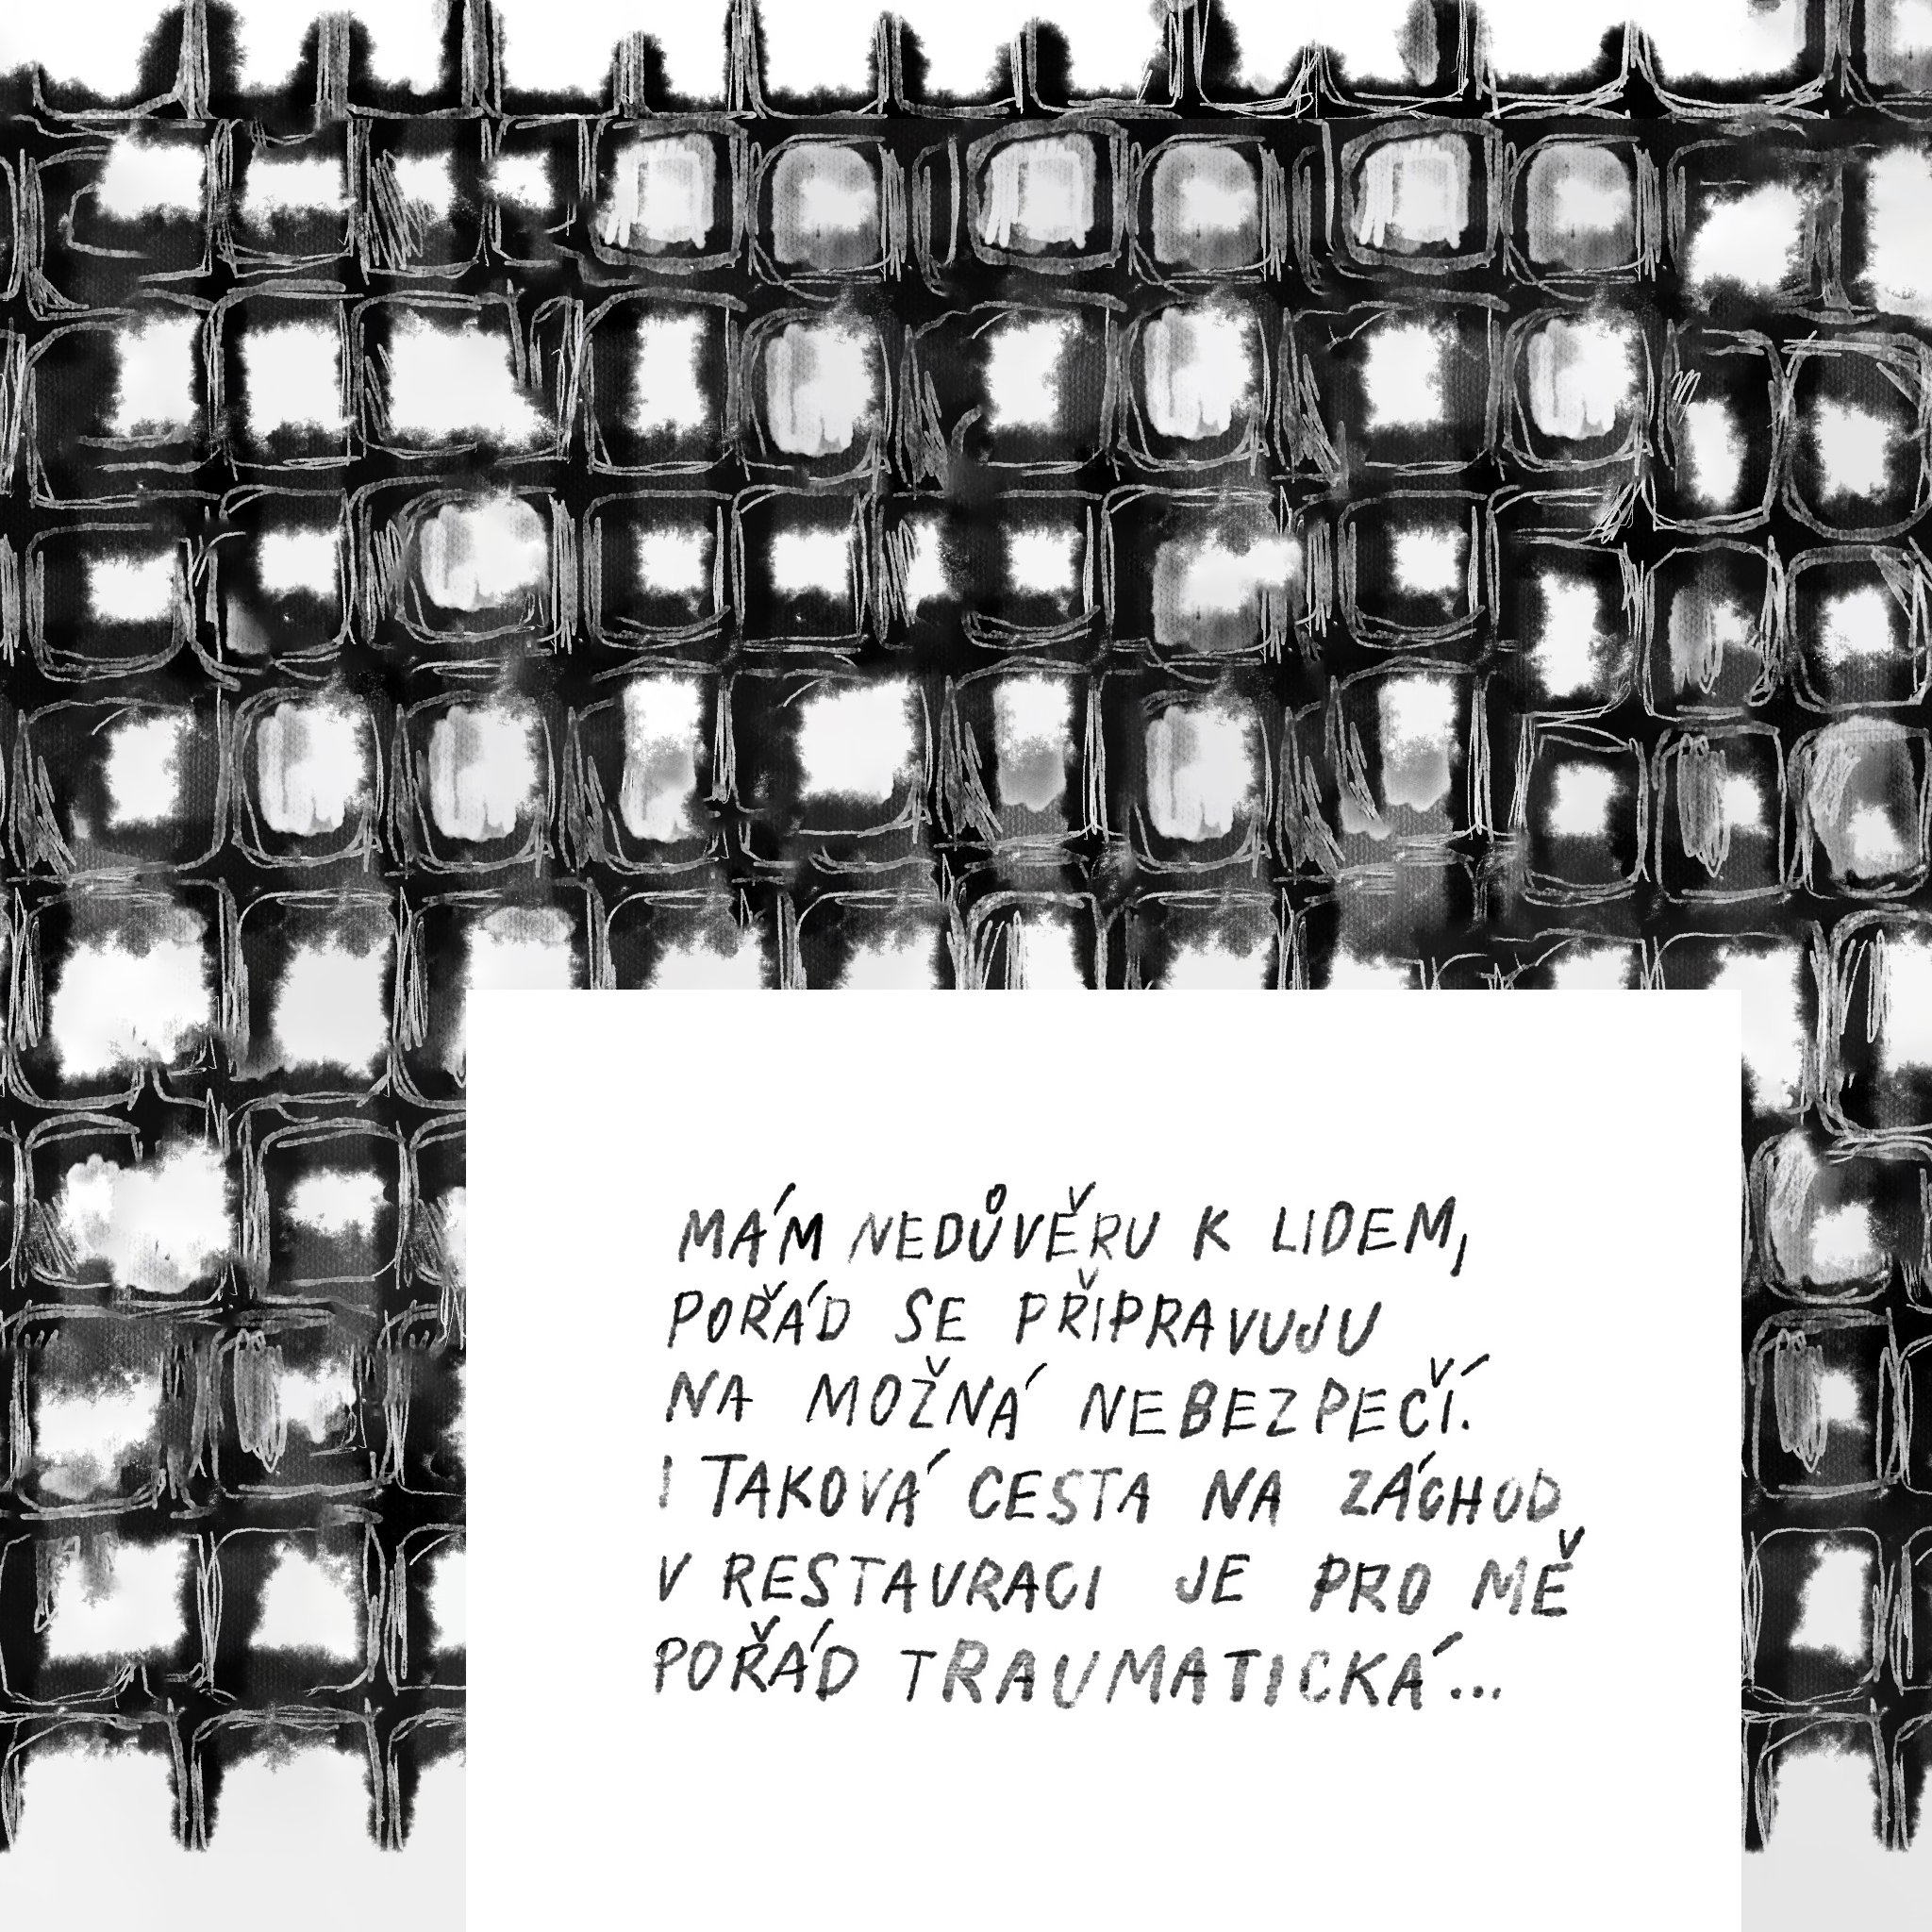 MÁM NEDŮVĚRU K LIDEM,
POŘÁD SE PŘIPRAVUJU
NA MOŽNÁ NEBEZPEČÍ.
I TAKOVÁ CESTA NA ZÁCHOD
V RESTAURACI JE PRO MĚ
POŘÁD TRAUMATICKÁ...